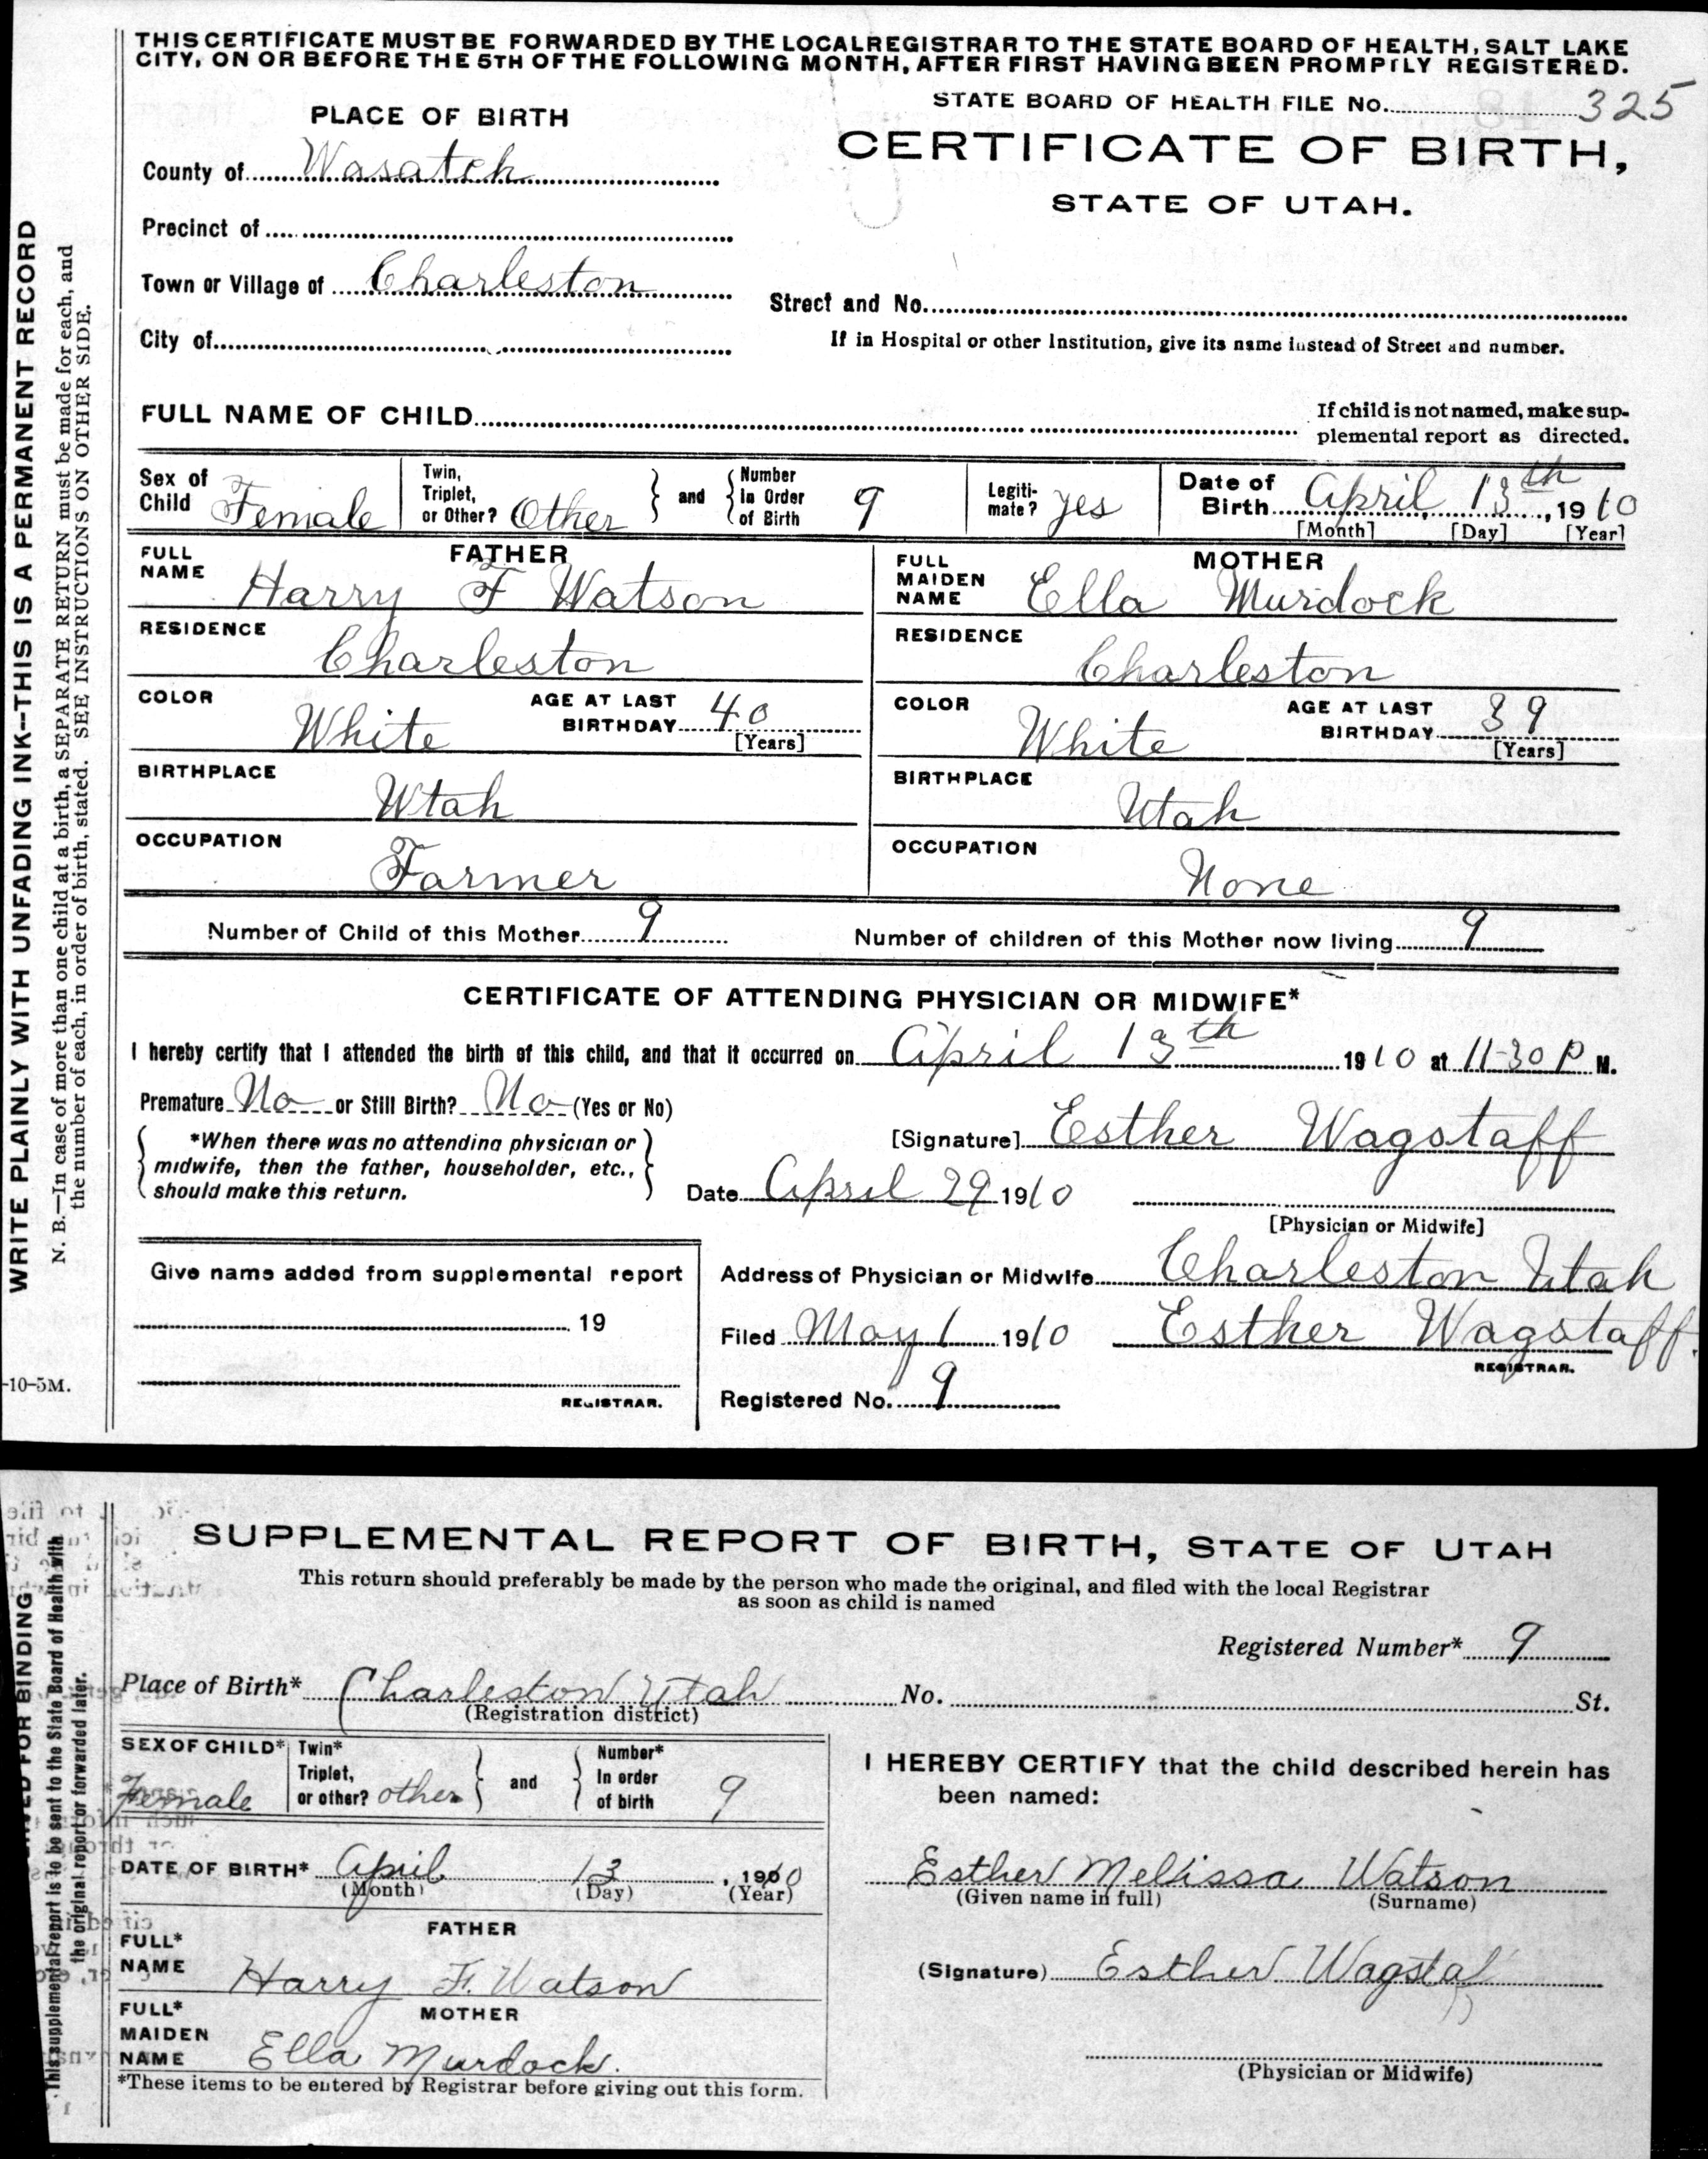 THIS CERTIFICATE MUST BE FORWARDED BY THE LOCAL REGISTRAR TO THE STATE BOARD OF HEALTH, SALT LAKE
CITY, ON OR BEFORE THE 5TH OF THE FOLLOWING MONTH, AFTER FIRST HAVING BEEN PROMPTLY REGISTERED.
STATE BOARD OF HEALTH FILE No. 325
PLACE OF BIRTH
CERTIFICATE OF BIRTH,
STATE OF UTAH.
County of Wasatch
Precinct of
Town or Village of Charleston
Street and No.
City of
If in Hospital or other Institution, give its name instead of Street and number.
FULL NAME OF CHILD
If child is not named, make sup-
plemental report as directed.
Sex of Child Female
Twin, Triplet, or Other? Other
and
Number in Order of Birth 9
Legiti-mate? yes
Date of Birth April 13th, 1910
[Month] [Day] [Year]
FATHER
FULL NAME Harry F Watson
MOTHER
FULL MAIDEN NAME Ella Murdock
RESIDENCE Charleston
RESIDENCE Charleston
COLOR White
AGE AT LAST BIRTHDAY 40
[Years]
COLOR White
AGE AT LAST BIRTHDAY 39
[Years]
BIRTHPLACE Utah
BIRTHPLACE Utah
OCCUPATION Farmer
OCCUPATION None
Number of Child of this Mother 9
Number of children of this Mother now living 9
CERTIFICATE OF ATTENDING PHYSICIAN OR MIDWIFE*
I hereby certify that I attended the birth of this child, and that it occurred on April 13th 1910 at 11-30 P M.
Premature No or Still Birth? No (Yes or No)
*When there was no attending physician or
midwife, then the father, householder, etc.,
should make this return.
[Signature] Esther Wagstaff
Date April 29 1910
[Physician or Midwife]
Give name added from supplemental report
19
REGISTRAR.
Address of Physician or Midwife Charleston Utah
Filed May 1 1910 Esther Wagstaff.
REGISTRAR.
Registered No. 9
WRITE PLAINLY WITH UNFADING INK--THIS IS A PERMANENT RECORD
N. B.—In case of more than one child at a birth, a SEPARATE RETURN must be made for each, and
the number of each, in order of birth, stated. SEE INSTRUCTIONS ON OTHER SIDE.
-10-5M.
SUPPLEMENTAL REPORT OF BIRTH, STATE OF UTAH
This return should preferably be made by the person who made the original, and filed with the local Registrar
as soon as child is named
Registered Number* 9
Place of Birth* Charleston Utah No. St.
(Registration district)
SEX OF CHILD* Female
Twin* Triplet, or other? other
and
Number* In order of birth 9
DATE OF BIRTH* April 13, 1910
(Month) (Day) (Year)
FATHER
FULL* NAME Harry F. Watson
MOTHER
FULL* MAIDEN NAME Ella Murdock.
*These items to be entered by Registrar before giving out this form.
I HEREBY CERTIFY that the child described herein has
been named:
Esther Mellissa Watson
(Given name in full) (Surname)
(Signature) Esther Wagstaf
(Physician or Midwife)
FOR BINDING
This supplemental report is to be sent to the State Board of Health with
the original report or forwarded later.